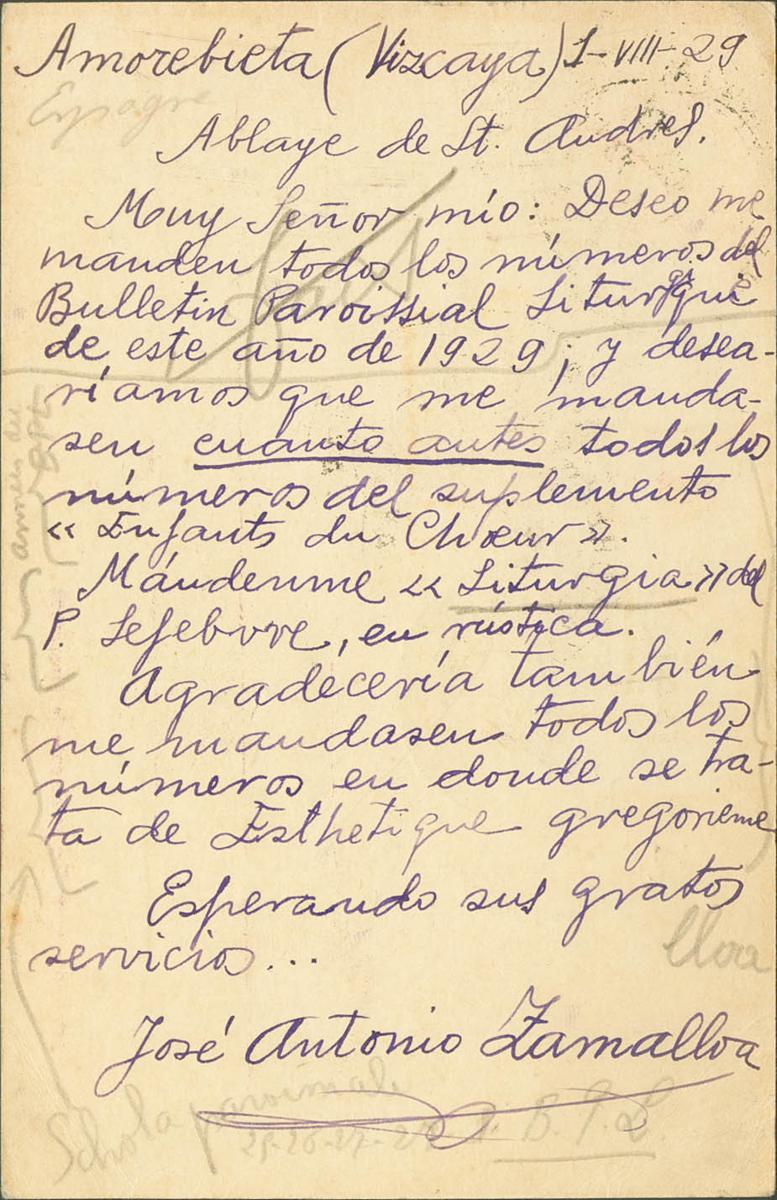 Amorebieta (Vizcaya) 1-VIII-29
Espagne
Abbaye de St. Andres.
Muy Señor mío: Deseo me
manden todos los números del
Bulletin Paroissial Liturgiqui
de este año de 1929; y desea-
ríamos que me manda-
sen cuanto antes todos los
números del suplemento
« Enfants du Chœur ».
Mándenme « Liturgia » del
P. Lefebvre, en rústica.
Agradecería también
me mandasen todos los
números en donde se tra-
ta de Esthetique gregorienne
Esperando sus gratos
servicios...
lloa
José Antonio Zamalloa
Schola paroissiale
B.P.L.